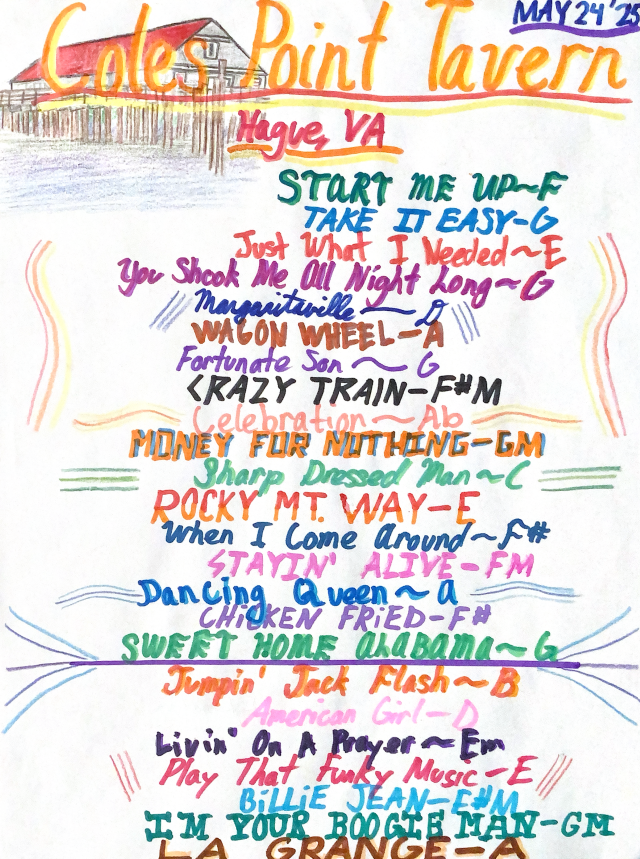 MAY 24 '25
Coles Point Tavern
Hague, VA
START ME UP~F
TAKE IT EASY-G
Just What I Needed~E
You Shook Me All Night Long~G
Margaritaville~D
WAGON WHEEL-A
Fortunate Son~G
CRAZY TRAIN-F#M
Celebration~Ab
MONEY FOR NOTHING-GM
Sharp Dressed Man~C
ROCKY MT. WAY-E
When I Come Around~F#
STAYIN' ALIVE-FM
Dancing Queen~A
CHiCKEN FRiED-F#
SWEET HOME ALABAMA~G
Jumpin' Jack Flash~B
American Girl-D
Livin' On A Prayer~Em
Play That Funky Music-E
BiLLiE JEAN-E#M
I'M YOUR BOOGIE MAN-GM
LA GRANGE-A